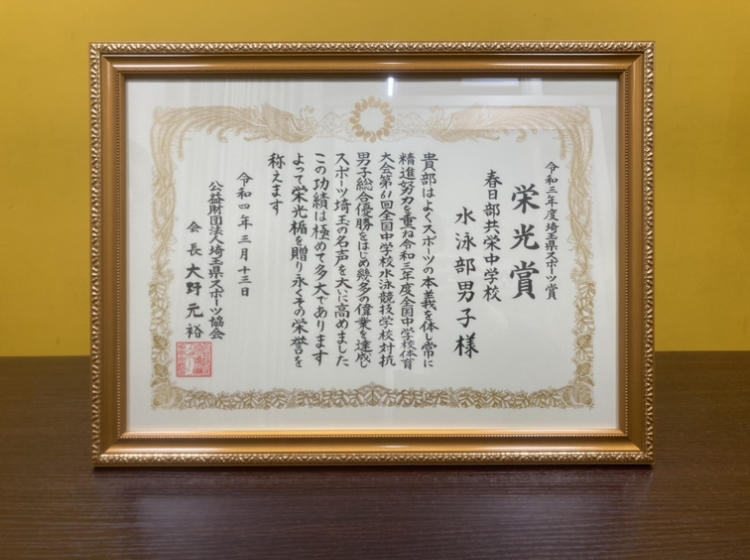 令和三年度埼玉県スポーツ賞
栄光賞
春日部共栄中学校
水泳部男子様
貴部はよくスポーツの本義を体し常に
精進努力を重ね令和三年度全国中学校体育
大会第61回全国中学校水泳競技学校対抗
男子総合優勝をはじめ幾多の偉業を達成し
スポーツ埼玉の名声を大いに高めました
この功績は極めて多大であります
よって栄光楯を贈り永くその栄誉を
称えます
令和四年三月十三日
公益財団法人埼玉県スポーツ協会
会長大野元裕